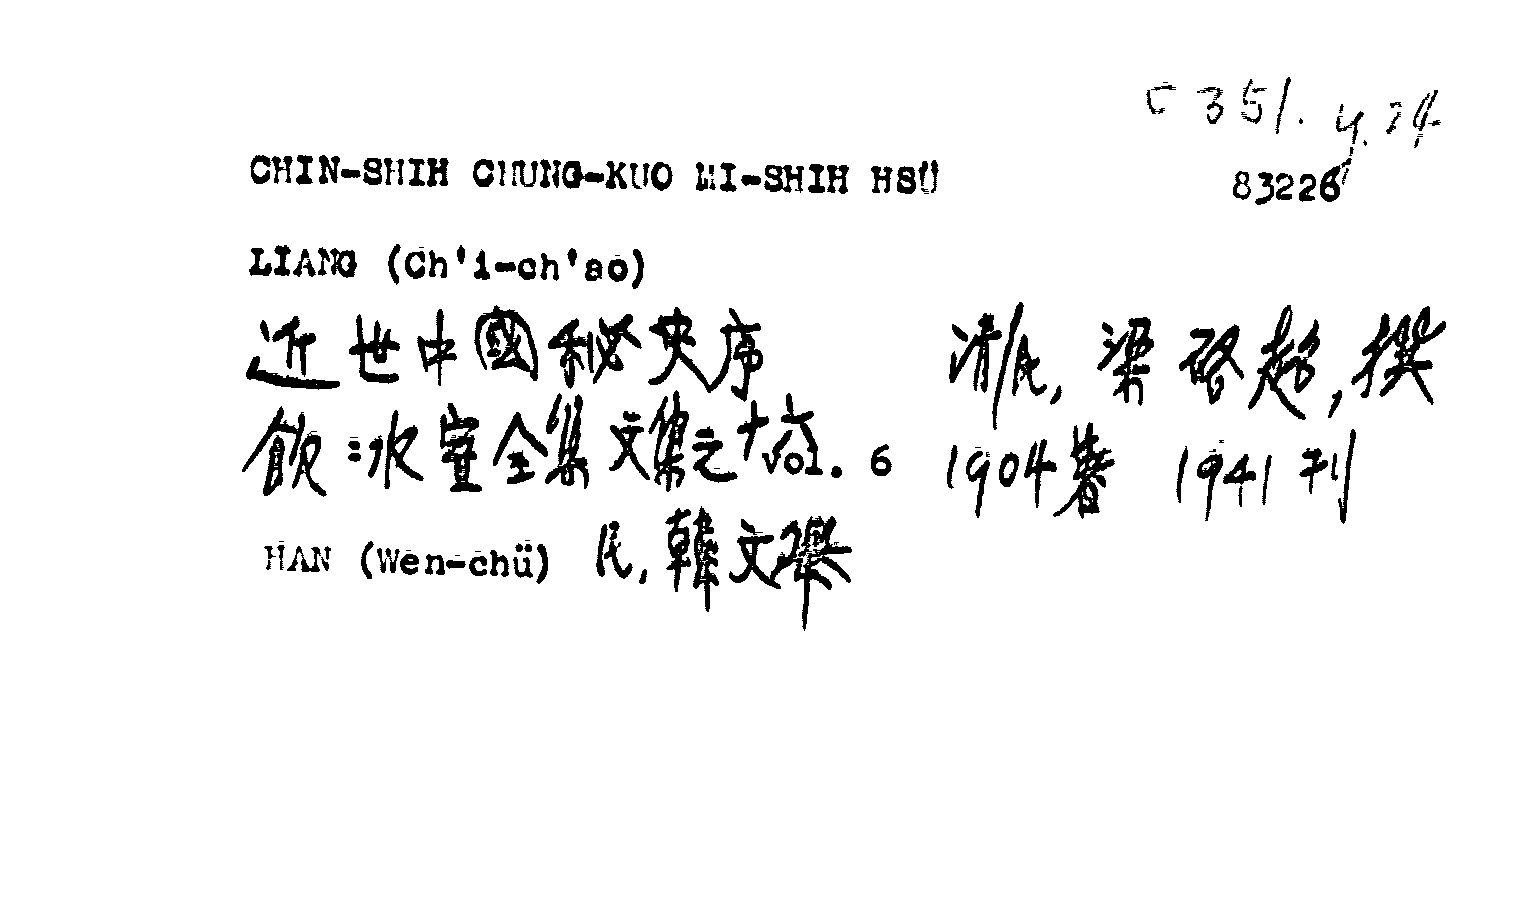 C 351. y. 24
CHIN-SHIH CHUNG-KUO MI-SHIH HSÜ
83226
LIANG (Ch'i-ch'ao)
近世中國秘史序 清/民, 梁啓超, 撰
飲冰室全集文集之十六 vol. 6 1904著 1941刊
HAN (Wen-chü) 民, 韓文舉